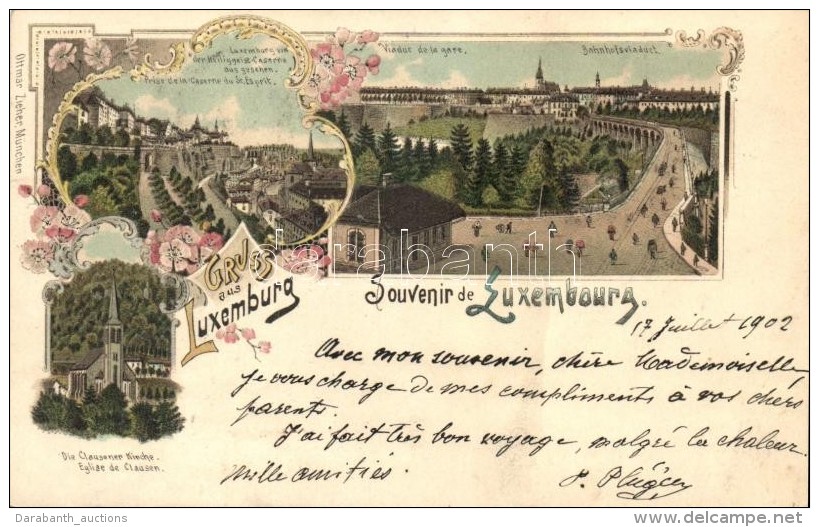 Luxemburg von
der Heiliggeist-Caserne
aus gesehen.
Prise de la Caserne du St. Esprit.
Viaduc de la gare.
Bahnhofsviaduct.
Ottmar Zieher, München
Gruss
aus
Luxemburg
Souvenir de Luxembourg.
darabanth
Die Clausener Kirche.
Eglise de Clausen.
17 Juillet 1902
Avec mon souvenir, chère Mademoiselle,
je vous charge de mes compliments à vos chers
parents.
J'ai fait très bon voyage, malgré la chaleur.
Mille amitiés.
Darabanth_auctions
delcampe.net